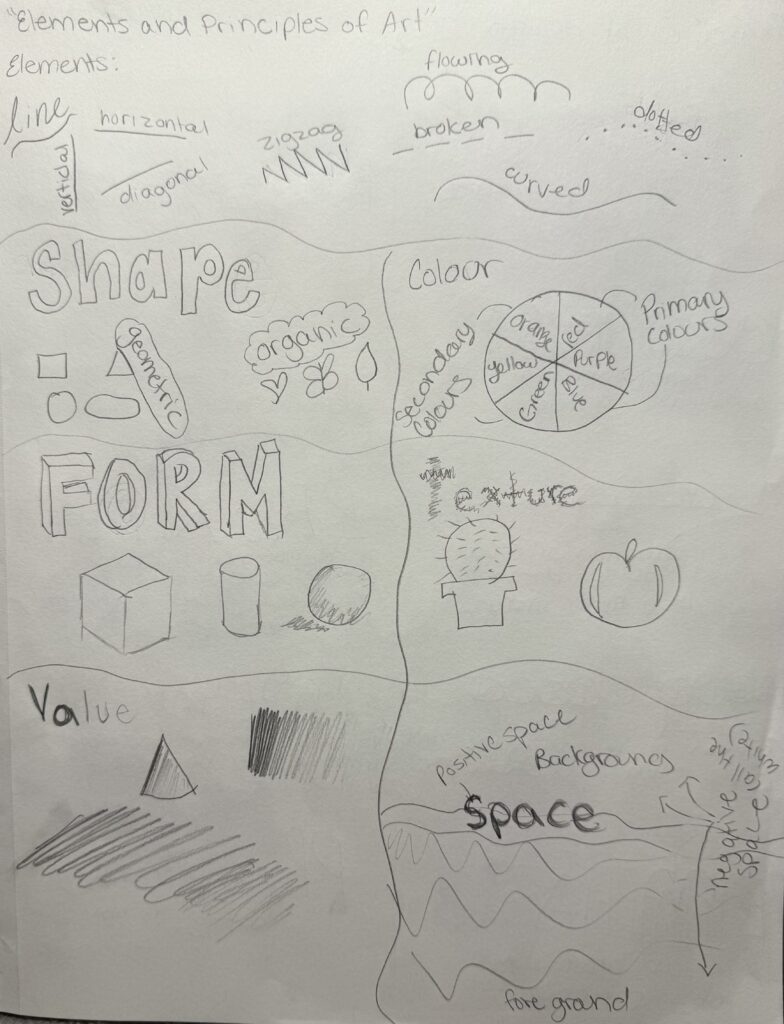 "Elements and Principles of Art"
Elements:
line
horizontal
vertical
diagonal
zigzag
flowing
broken
dotted
curved
Shape
geometric
organic
Colour
Secondary
Colours
Primary
colours
Orange
red
Yellow
Purple
Green
Blue
FORM
Texture
Value
Positive space
Background
Space
negative
space
(all the
white)
fore grand